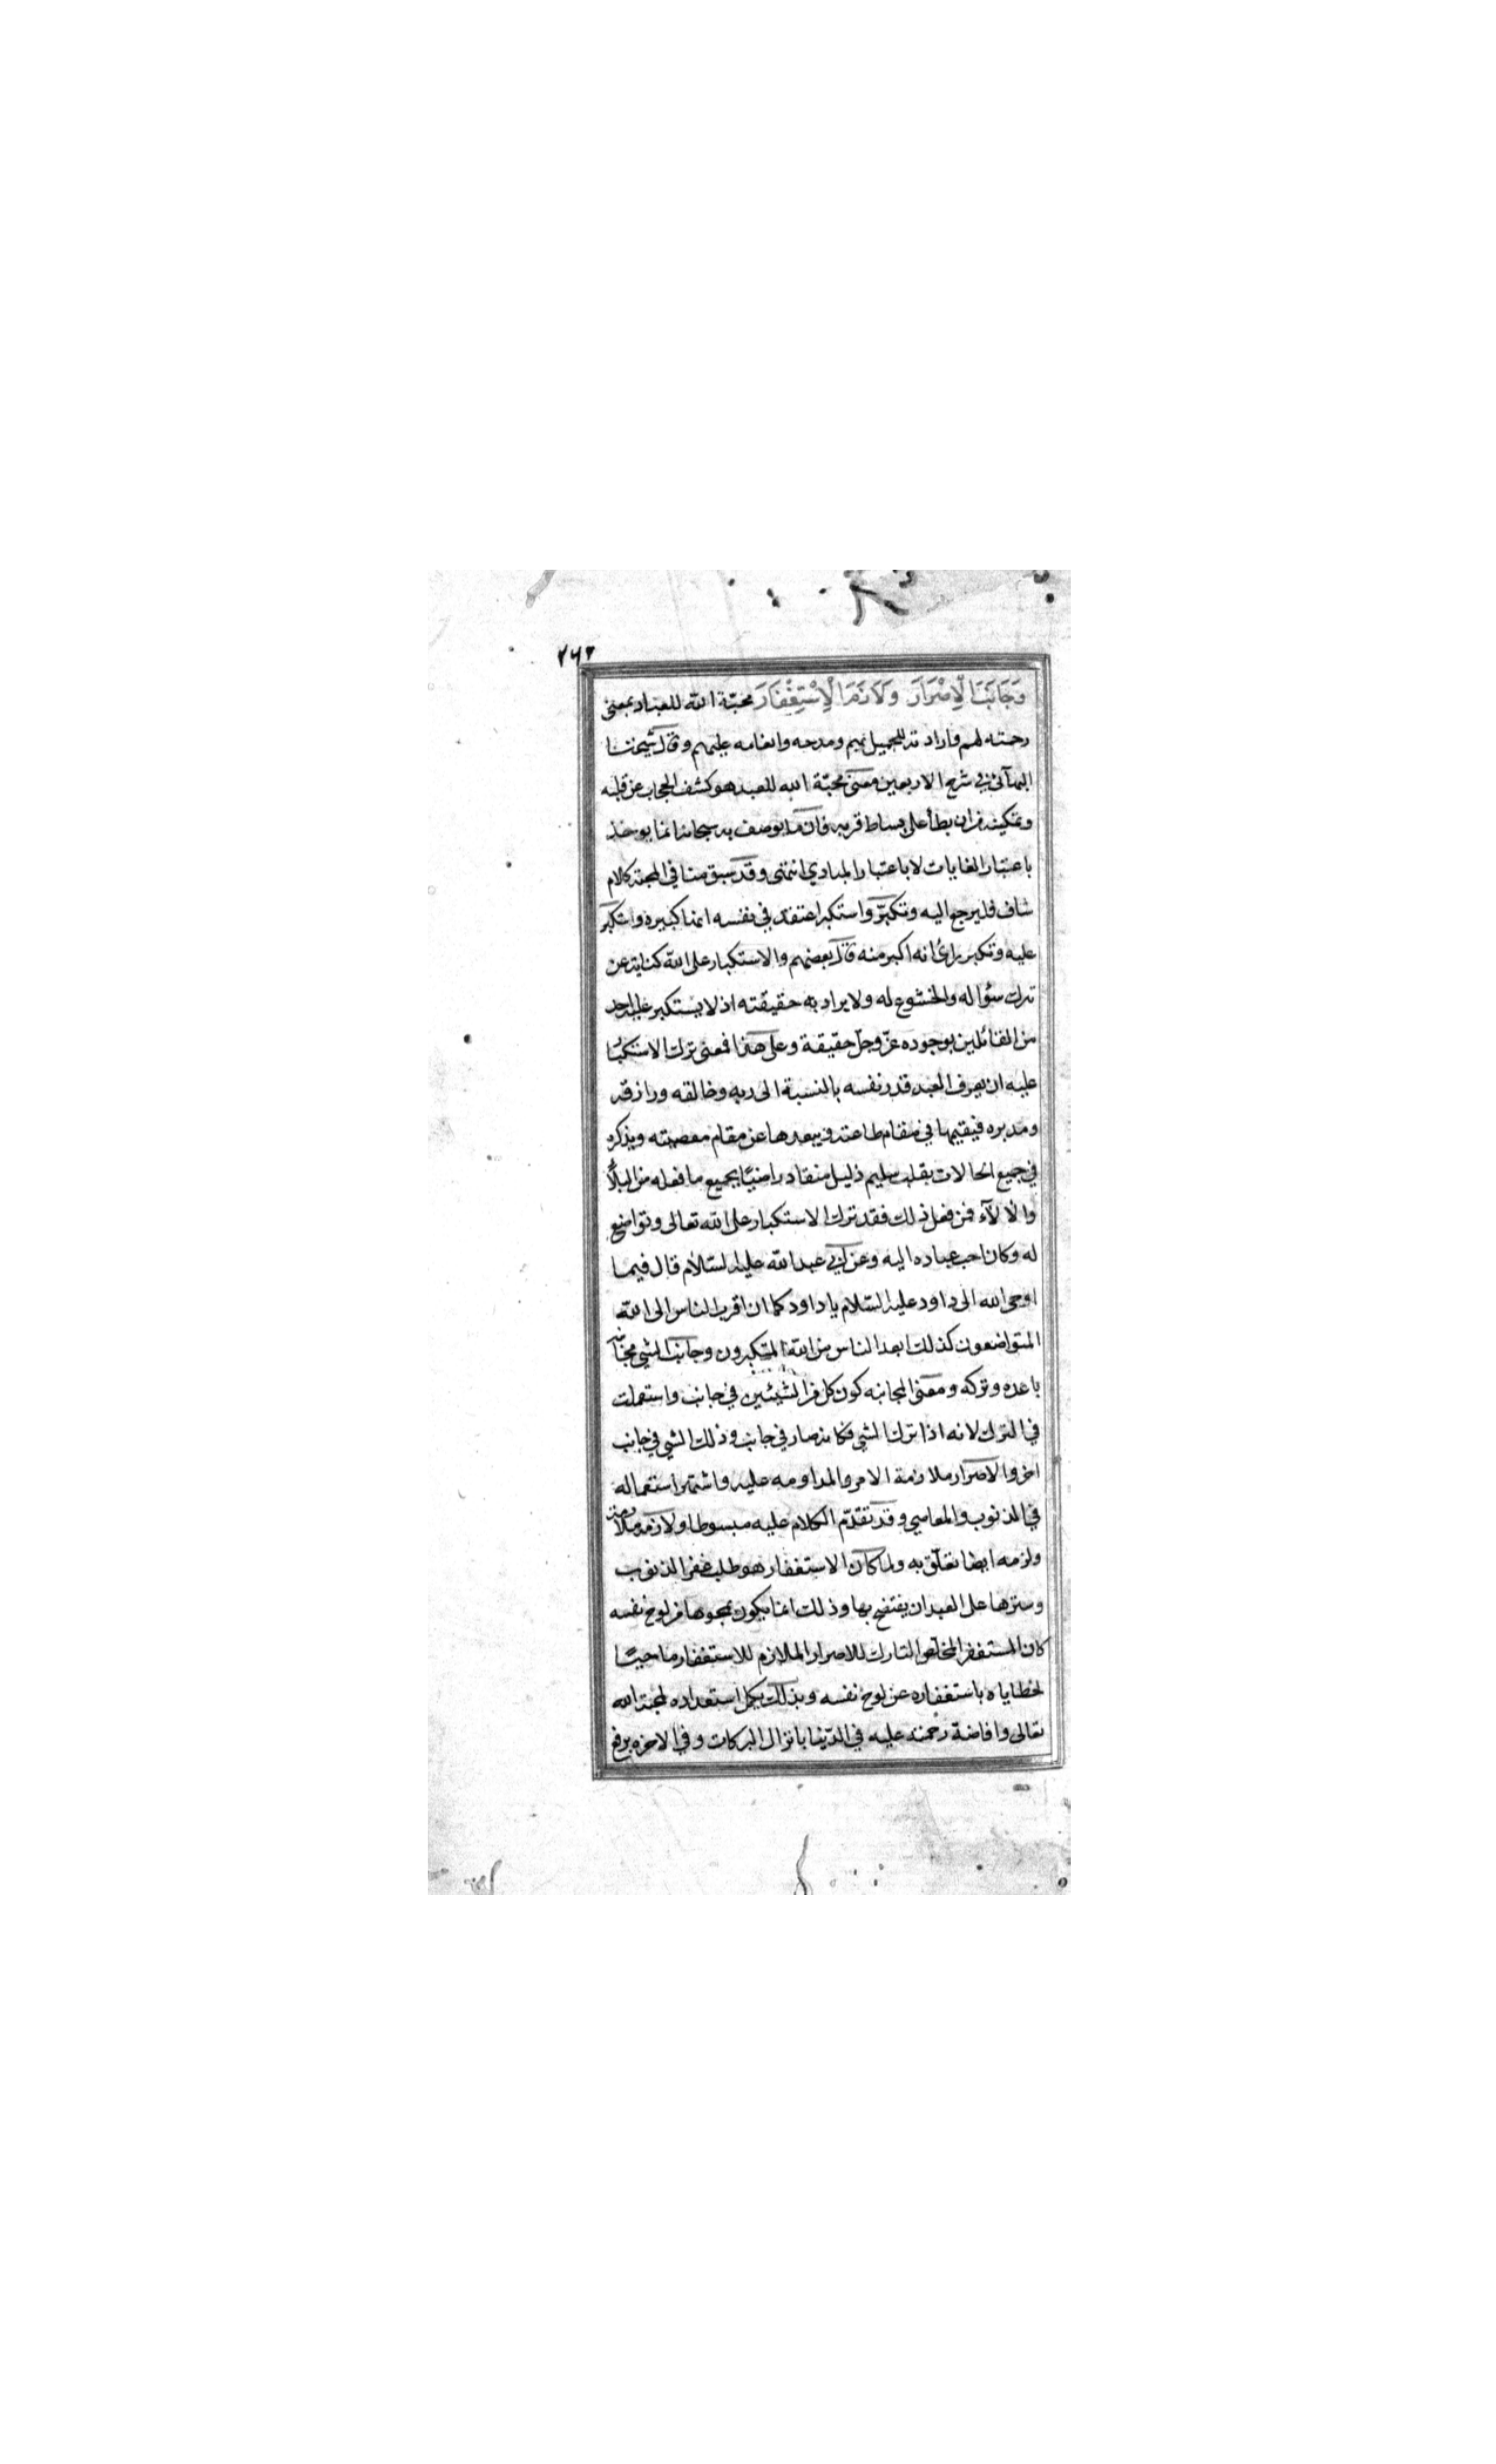 ٢٦٢
وَجَانَبَ الْإِصْرَارَ وَلَازَمَ الْإِسْتِغْفَارَ محبّة الله للعباد بمعنى
رحمته لهم وارادته للجميل بهم ومدحه وانعامه عليهم وقال شيخنا
البهائى في شرح الاربعين معنى محبّة الله للعبد هو كشف الحجاب عن قلبه
وتمكينه من ان يطأ على بساط قربه فان ما يوصف به سبحانه انما يوخذ
باعتبار الغايات لا باعتبار المبادي انتهى وقد سبق منا في المحبة كلام
شاف فليرجع اليه وتكبّر واستكبر اعتقد في نفسه انها كبيرة واستكبر
عليه وتكبر رأى انه اكبر منه قال بعضهم والاستكبار على الله كناية عن
ترك سؤاله والخشوع له ولا يراد به حقيقته اذ لا يستكبر عليه احد
من القائلين بوجوده عزّ وجلّ حقيقة وعلى هذا فمعنى ترك الاستكبار
عليه ان يعرف العبد قدر نفسه بالنسبة الى ربه وخالقه ورازقه
ومدبره فيقيمها في مقام طاعته ويبعدها عن مقام معصيته ويذكره
في جميع الحالات بقلب سليم ذليل منقاد راضيا بجميع ما فعله من البلاء
والالآء فمن فعل ذلك فقد ترك الاستكبار على الله تعالى وتواضع
له وكان احب عباده اليه وعن ابي عبد الله عليه السّلام قال فيما
اوحى الله الى داود عليه السّلام يا داود كما ان اقرب الناس الى الله
المتواضعون كذلك ابعد الناس من الله المتكبرون وجانب الشي مجانبة
باعده وتركه ومعنى المجانبه كون كل من الشيئين في جانب واستعملت
في الترك لانه اذا ترك الشي فكانه صار في جانب وذلك الشي في جانب
اخر والاصرار ملازمة الامر والمداومه عليه واشتهر استعماله
في الذنوب والمعاصي وقد تقدّم الكلام عليه مبسوطا ولازمه ملازمة
ولزمه ايضا تعلّق به ولما كان الاستغفار هو طلب غفر الذنوب
وسترها على العبد ان يفتضح بها وذلك انما يكون بمحوها من لوح نفسه
كان المستغفر المخلص التارك للاصرار الملازم للاستغفار ماحيا
لخطاياه باستغفاره عن لوح نفسه وبذلك يكمل استعداده لمحبة الله
تعالى وافاضة رحمته عليه في الدّنيا بانزال البركات وفي الاخره برفع